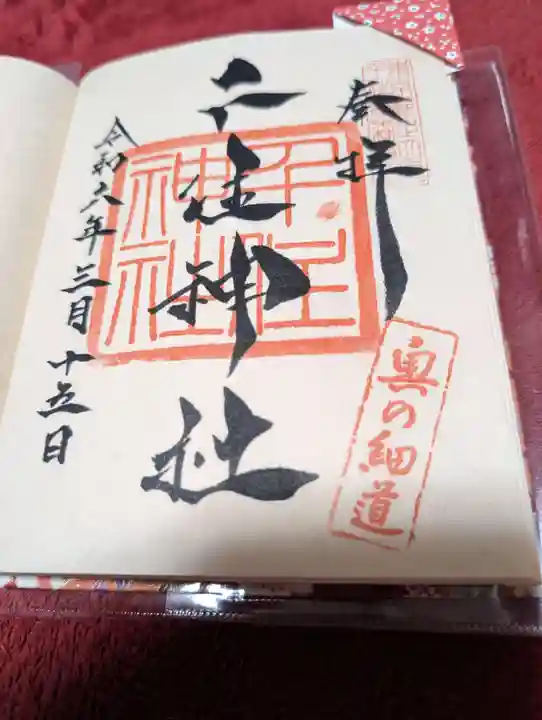 奉拝
奥の細道
千住神社
千住
神社
令和六年三月十五日